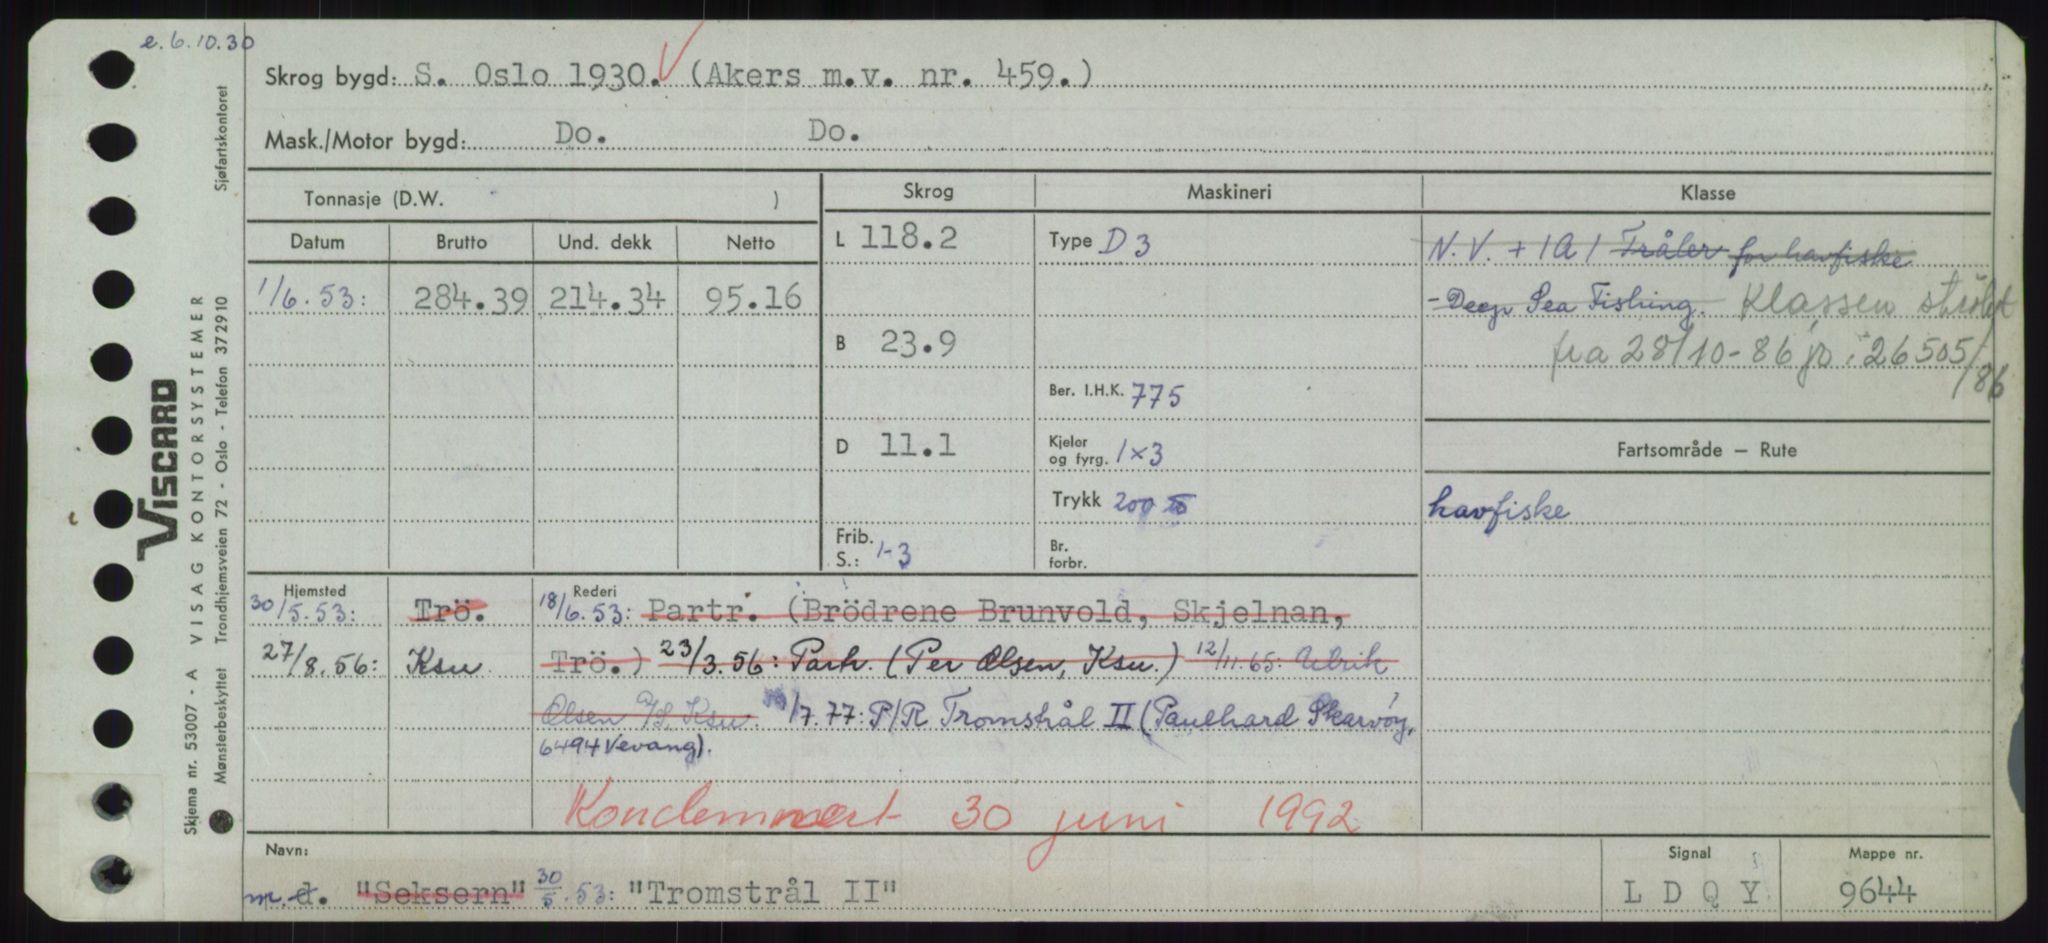 e. 6.10.30
Skrog bygd: S. Oslo 1930. (Akers m.v. nr. 459.)
Mask./Motor bygd: Do. Do.
Tonnasje (D.W. )
Skrog
Maskineri
Klasse
Datum
Brutto
Und. dekk
Netto
1/6.53: 284.39 214.34 95.16
L 118.2
B 23.9
D 11.1
Frib. S.: 1-3
Type D3
Ber. I.H.K. 775
Kjeler og fyrg. 1×3
Trykk 200
Br. forbr.
N.V. + 1A1 Tråler for havfiske
- Deep Sea Fishing. Klassen strøket
fra 28/10-86 jr. 26505/86
Fartsområde — Rute
havfiske
Hjemsted
30/5.53: Trö.
27/8.56: Ksu
Rederi
18/6.53: Partr. (Brödrene Brunvold, Skjelnan,
Trö.) 23/3.56: Partr. (Per Olsen, Ksu.) 12/11.65: Ulrik
Olsen A/S, Ksu. /7.77: P/R Tromstrål II (Paulhard Skarvøy,
6494 Vevang).
Kondemnert 30 juni 1992
Navn:
m. d. "Seksern" 30/5.53: "Tromstrål II"
Signal
L D Q Y
Mappe nr.
9644
VISCARD
Skjema nr. 53007 - A VISAG KONTORSYSTEMER
Mønsterbeskyttet Trondhjemsveien 72 - Oslo - Telefon 372910 Sjøfartskontoret